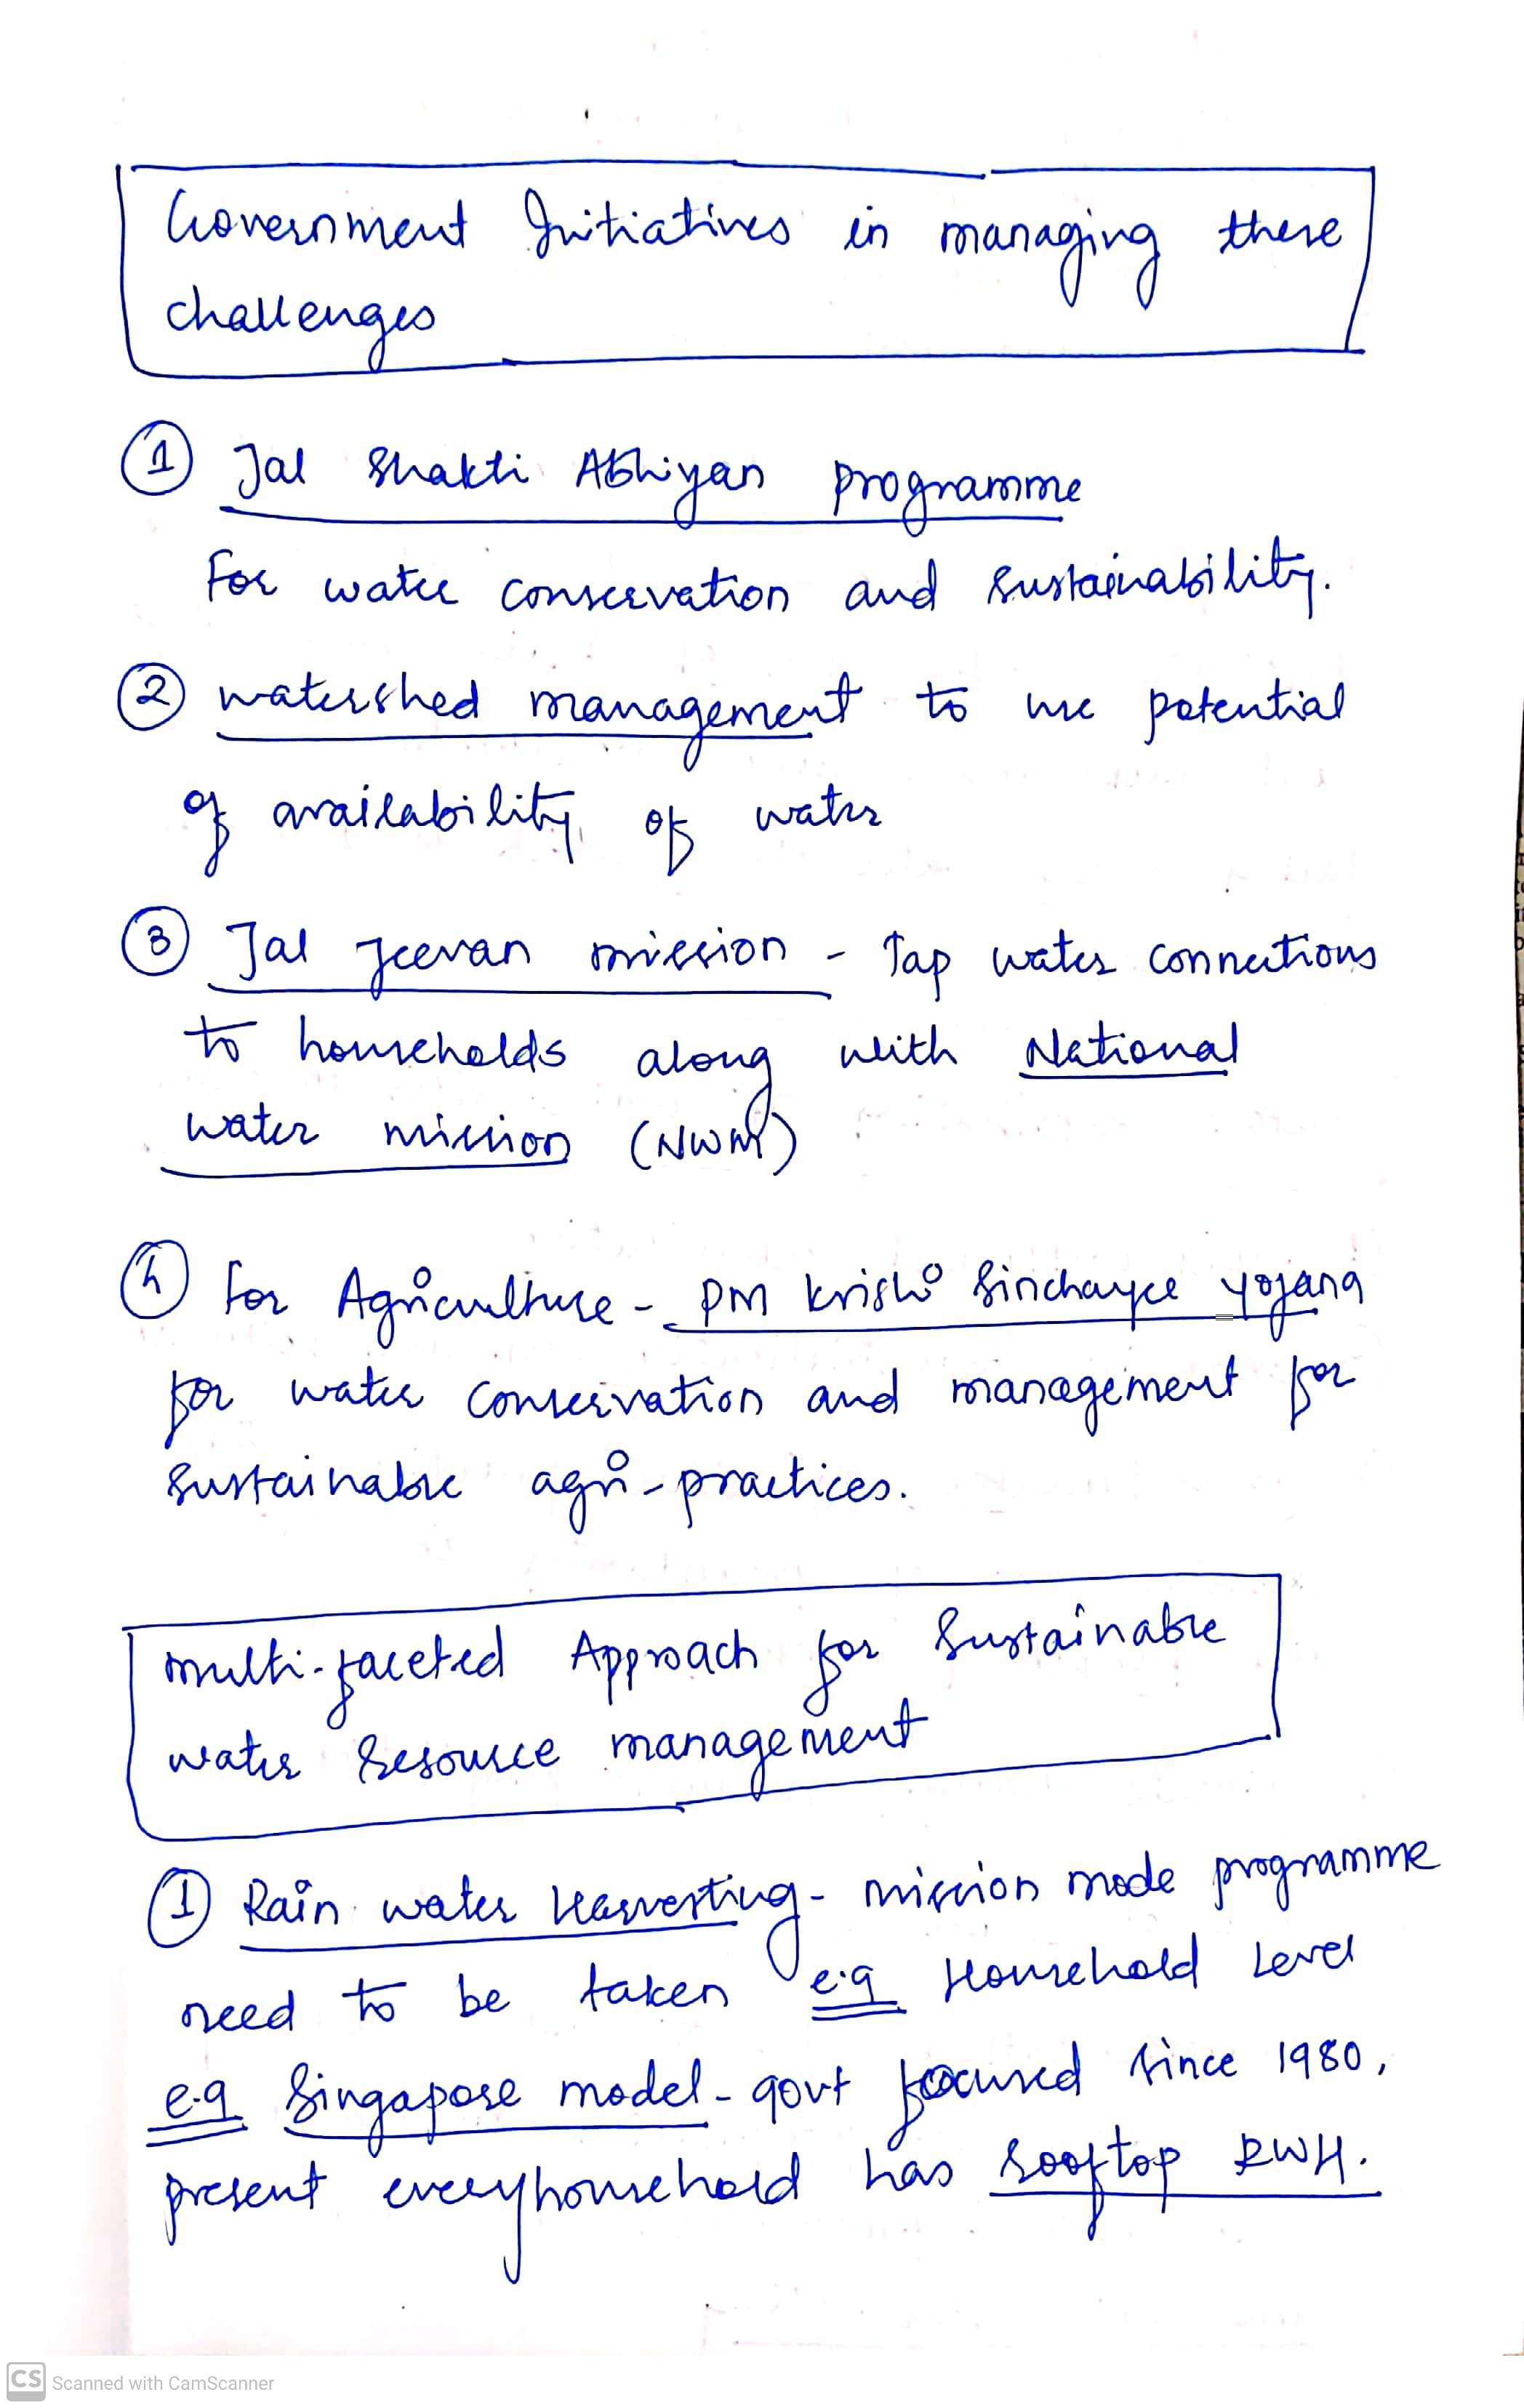 Government Initiatives in managing these
challenges
1 Jal Shakti Abhiyan programme
For water conservation and sustainability.
2 watershed management to use potential
of availability of water
3 Jal Jeevan mission - Tap water connections
to households along with National
water mission (NWM)
4 For Agriculture - PM Krishi Sinchayee yojana
for water conservation and management for
sustainable agri-practices.
multi-faceted Approach for Sustainable
water resource management
1 Rain water Harvesting - mission mode programme
need to be taken e.g Household Level
e.g Singapore model - govt focused since 1980,
present every household has rooftop RWH.
CS Scanned with CamScanner